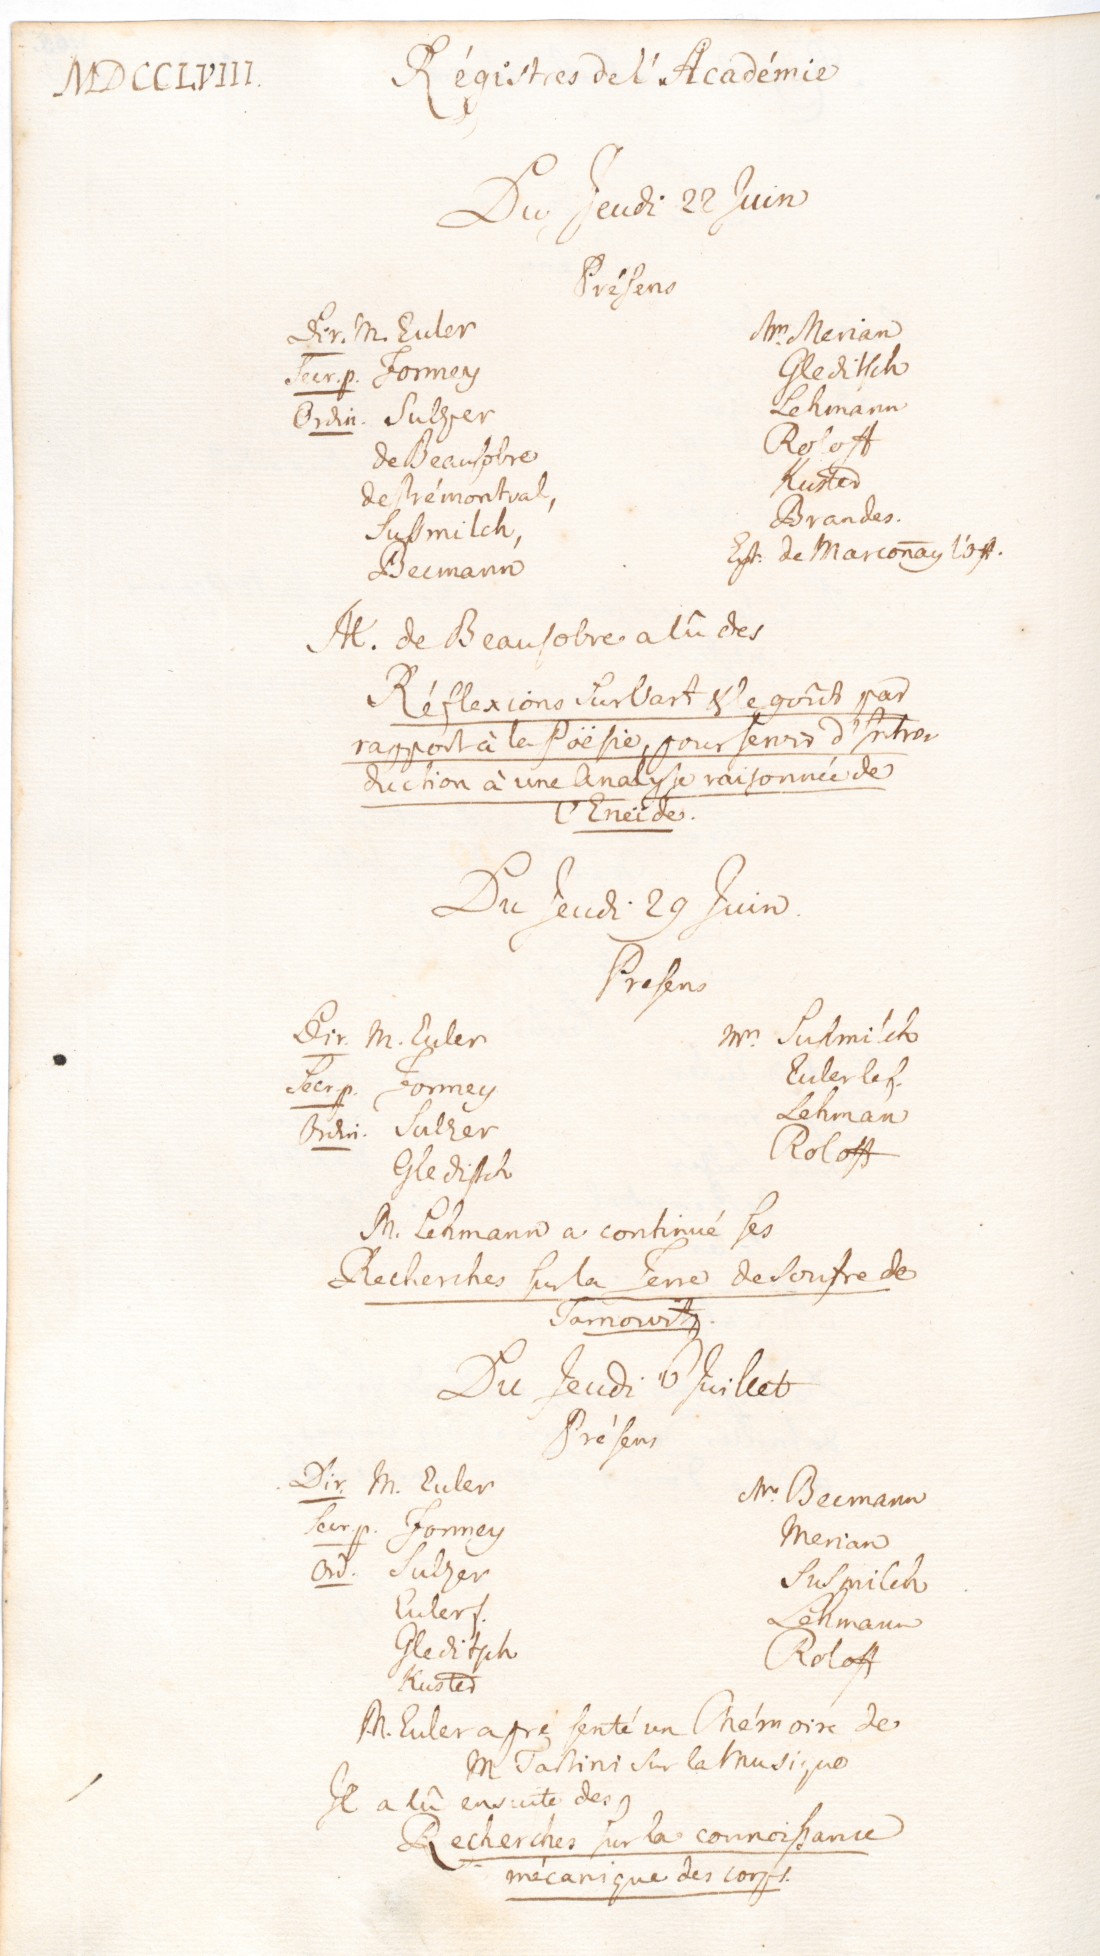 MDCCLVIII.
Régistres de l'Académie
Du Jeudi 22 Juin
Présens
Dir. M. Euler
Secr. p. Formey
Ordin. Sulzer
de Beausobre
de Prémontval,
Susmilch,
Becmann
Mrs. Merian
Gleditsch
Lehmann
Roloff
Kuster
Brandes.
de Marconnay
M. de Beausobre a lû des
Réflexions sur l'art & le goût par
rapport à la Poësie, pour servir d'Intro
duction à une Analyse raisonnée de
l'Eneïde.
Du Jeudi 29 Juin
Presens
Dir. M. Euler
Secr. p. Formey
Ordin. Sulzer
Gleditsch
Mrs. Susmilch
Euler le f.
Lehman
Roloff
M. Lehmann a continué ses
Recherches sur la Terre de Soufre de
Tarnowitz.
Du Jeudi 6 Juillet
Présens
Dir. M. Euler
Secr. p. Formey
Ord. Sulzer
Euler f.
Gleditsch
Kuster
Mrs. Becmann
Merian
Susmilch
Lehmann
Roloff
M. Euler a pre senté un Mémoire de
M Tartini sur la Musique
Il a lû ensuite des
Recherches sur la connoissance
mécanique des corps.